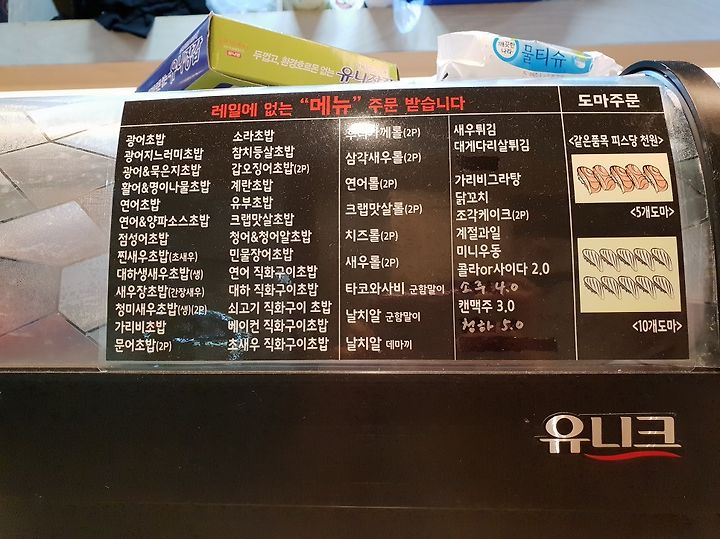 두껍고, 환경호르몬 없는
유니장갑
깨끗한
나라
물티슈
레일에 없는 “메뉴” 주문 받습니다
광어초밥
광어지느러미초밥
광어&묵은지초밥
활어&명이나물초밥
연어초밥
연어&양파소스초밥
점성어초밥
찐새우초밥(초새우)
대하생새우초밥(생)
새우장초밥(간장새우)
청미새우초밥(생)(2P)
가리비초밥
문어초밥(2P)
소라초밥
참치등살초밥
갑오징어초밥(2P)
계란초밥
유부초밥
크랩맛살초밥
청어&청어알초밥
민물장어초밥
연어 직화구이초밥
대하 직화구이초밥
쇠고기 직화구이 초밥
베이컨 직화구이초밥
초새우 직화구이초밥
삼각새우롤(2P)
연어롤(2P)
크랩맛살롤(2P)
치즈롤(2P)
새우롤(2P)
타코와사비 군함말이
날치알 군함말이
날치알 데마끼
새우튀김
대게다리살튀김
가리비그라탕
닭꼬치
조각케이크(2P)
계절과일
미니우동
콜라or사이다 2.0
소주 4.0
캔맥주 3.0
청하 5.0
도마주문
<같은품목 피스당 천원>
<5개도마>
<10개도마>
유니크